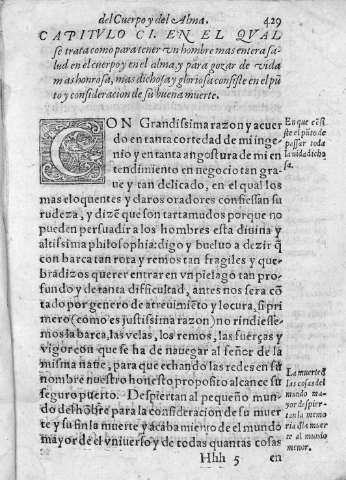 del Cuerpo y del Alma. 429
CAPITVLO CI. EN EL QVAL
se trata como para tener vn hombre mas entera sa-
lud en el cuerpo y en el alma, y para gozar de vida
mas honrosa, mas dichosa y gloriosa consiste en el pũ
to y consideracion de su buena muerte.
CON Grandissima razon y acuer
do en tanta cortedad de mi inge-
nio y en tanta angostura de mi en
tendimiento en negocio tan gra-
ue y tan delicado, en el qual los
mas eloquentes y claros oradores confiessan su
rudeza, y dizẽ que son tartamudos porque no
pueden persuadir a los hombres esta diuina y
altissima philosophia: digo y bueluo a dezir q̃
con barca tan rota y remos tan fragiles y que-
bradizos querer entrar en vn pielago tan pro-
fundo y de tanta difficultad, antes nos sera cõ
tado por genero de atreuimiẽto y locura, si pri
mero (como es justissima razon) no rindieste-
mos la barca, las velas, los remos, las fuerças y
vigor con que se ha de nauegar al señor de la
misma naue, para que echando las redes en su
nombre nuestro honesto proposito alcance su
seguro puerto. Despiertan al pequeño mun-
do del hõbre para la consideracion de su muer
te y su fin la muerte y acabamiento de el mundo
mayor de el vniuerso y de todas quantas cosas
Hhh 5 en
En que cõsi
ste el pũto de
passar toda
la vida dicho
sa.
La muerte d̃
las cosas del
mundo ma-
yor despier-
tan la memo
ria d̃ la muer
te al mundo
menor.